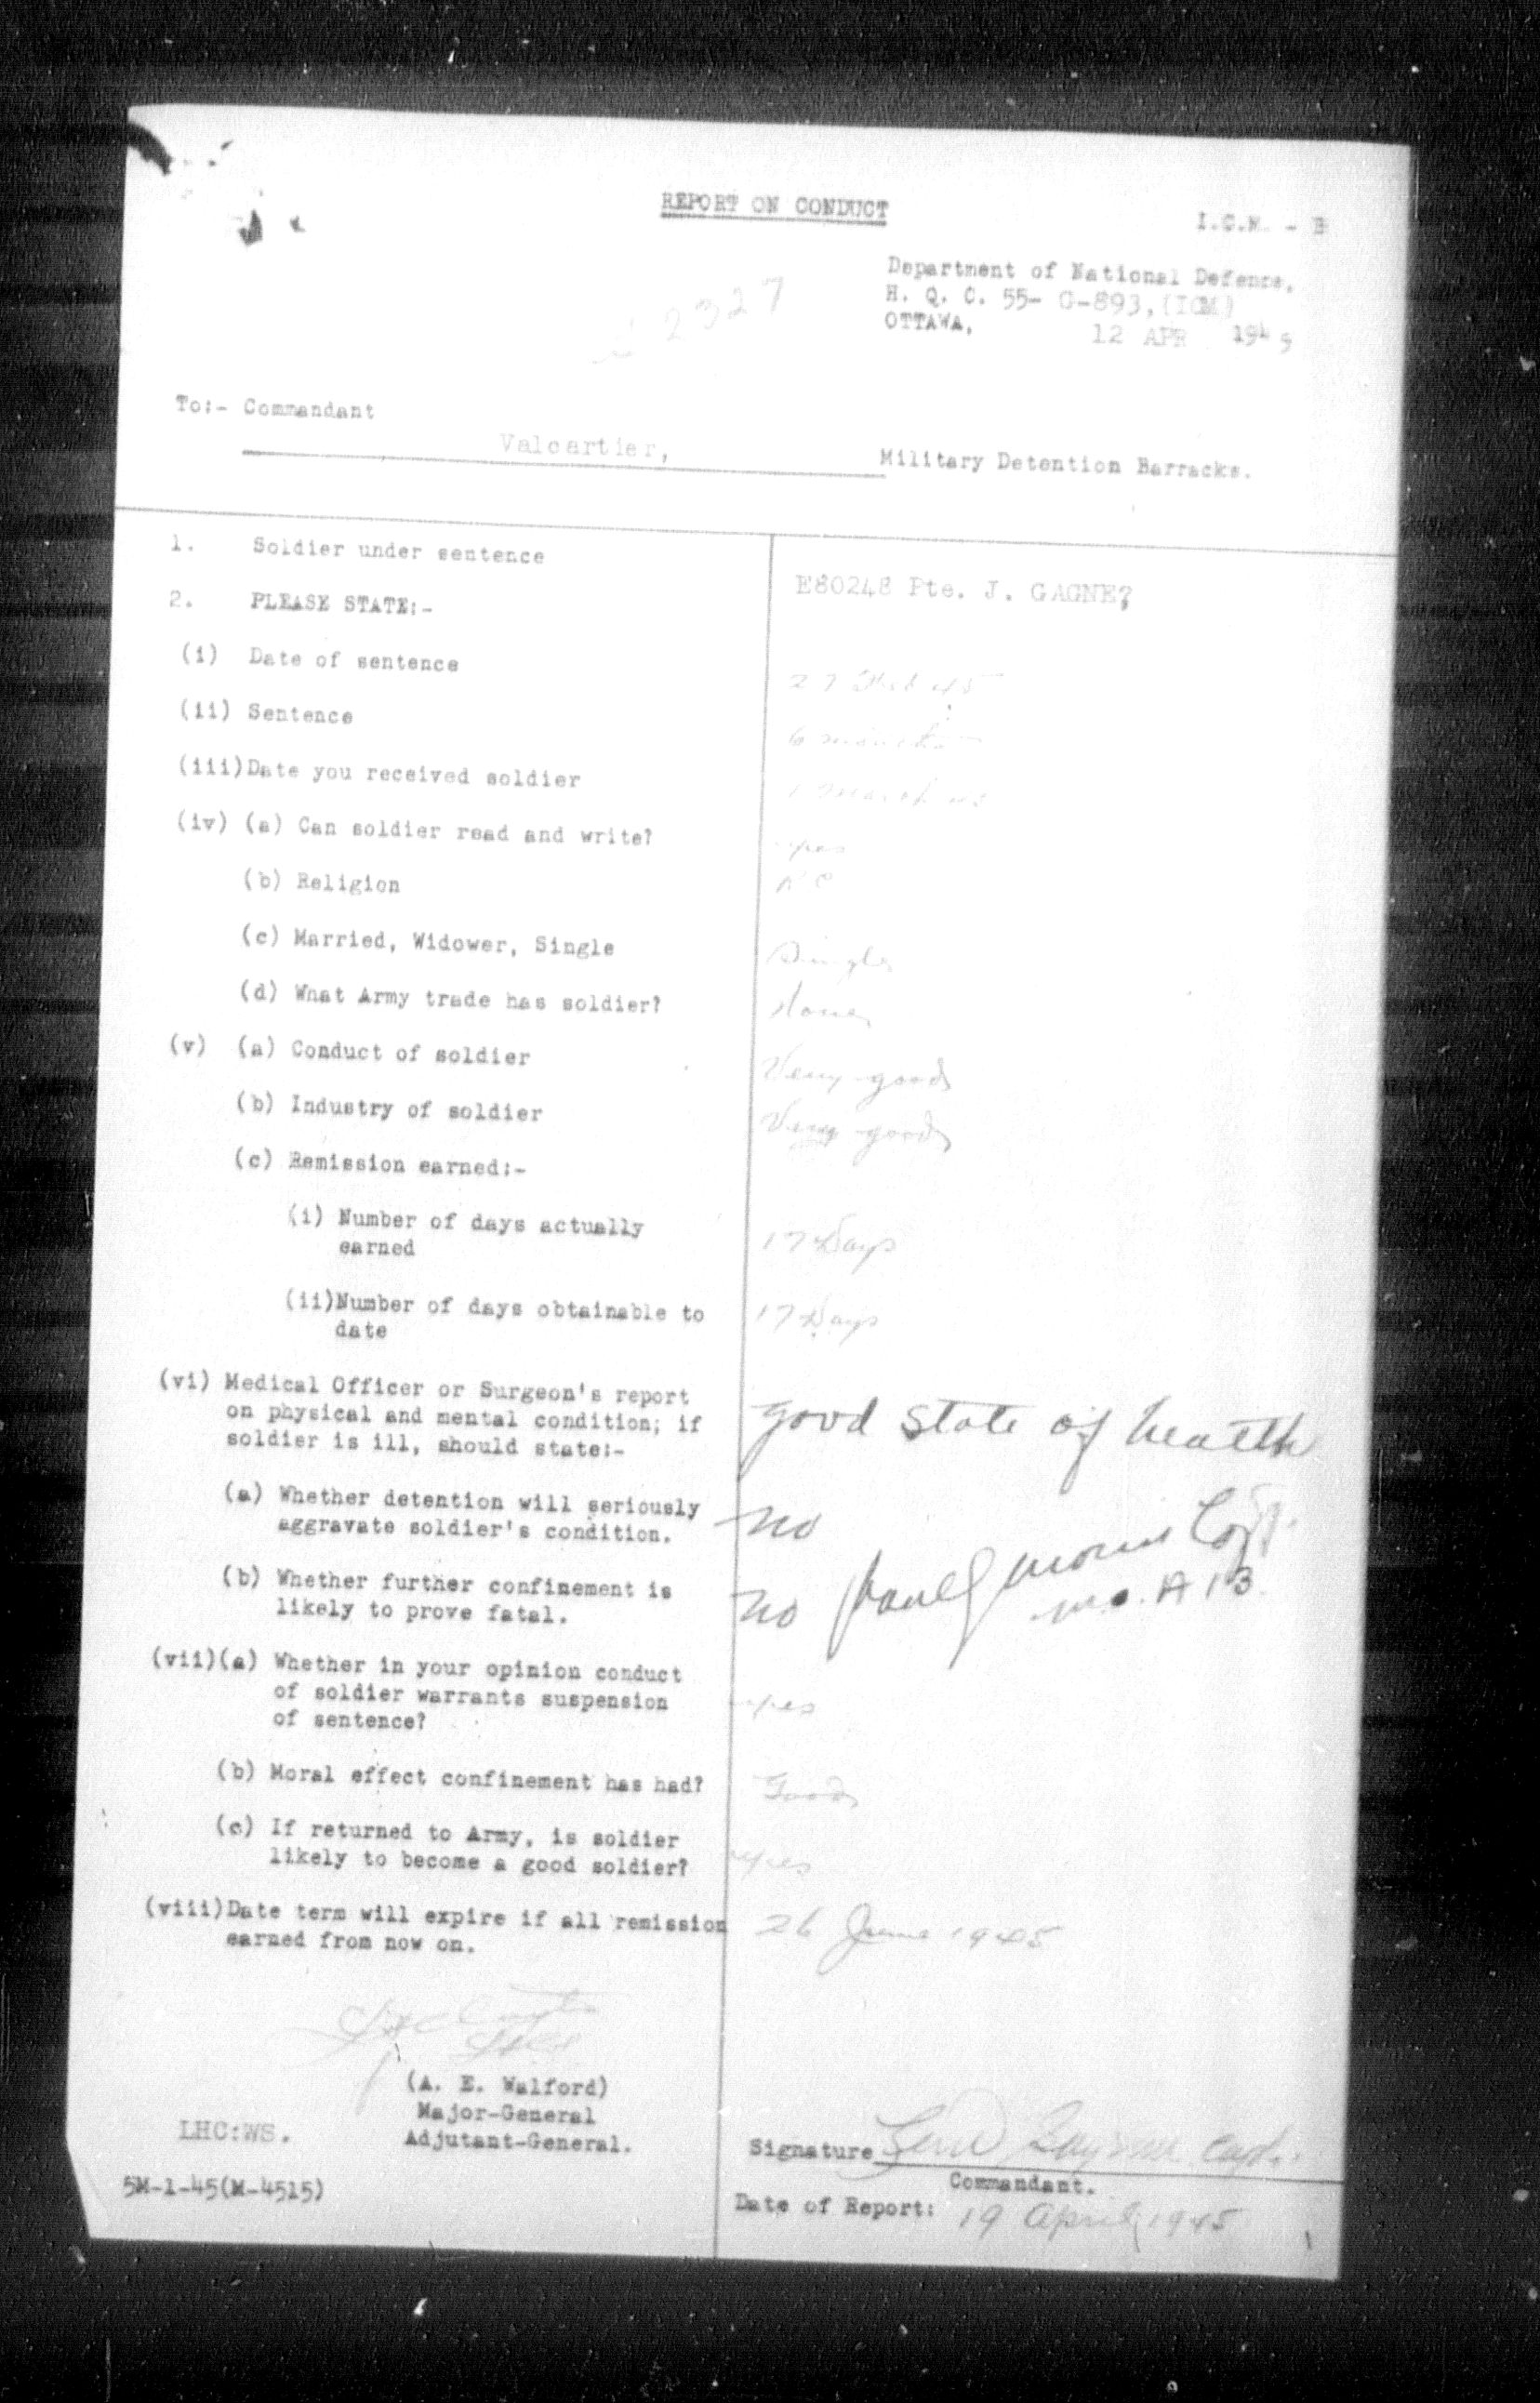 REPORT ON CONDUCT
I.C.M. - B
Department of National Defence,
H. Q. C. 55- G-893, (ICM)
OTTAWA, 12 APR 1945
2327
To:- Commandant
Valcartier, Military Detention Barracks.
1. Soldier under sentence
E80248 Pte. J. GAGNE?
2. PLEASE STATE:-
(i) Date of sentence 27 Feb 45
(ii) Sentence 6 months
(iii) Date you received soldier 1 March 45
(iv) (a) Can soldier read and write? yes
(b) Religion RC
(c) Married, Widower, Single Single
(d) What Army trade has soldier? None
(v) (a) Conduct of soldier Very good
(b) Industry of soldier Very good
(c) Remission earned:-
(i) Number of days actually
earned 17 Days
(ii) Number of days obtainable to
date 17 Days
(vi) Medical Officer or Surgeon's report
on physical and mental condition; if
soldier is ill, should state:-
good state of health
(a) Whether detention will seriously
aggravate soldier's condition. no
(b) Whether further confinement is
likely to prove fatal. no
M.O. A 13
(vii) (a) Whether in your opinion conduct
of soldier warrants suspension
of sentence? yes
(b) Moral effect confinement has had? Good
(c) If returned to Army, is soldier
likely to become a good soldier? yes
(viii) Date term will expire if all remission
earned from now on. 26 June 1945
(A. E. Walford)
Major-General
Adjutant-General.
LHC:WS.
5M-1-45(M-4515)
Signature Capt.
Commandant.
Date of Report: 19 April 1945